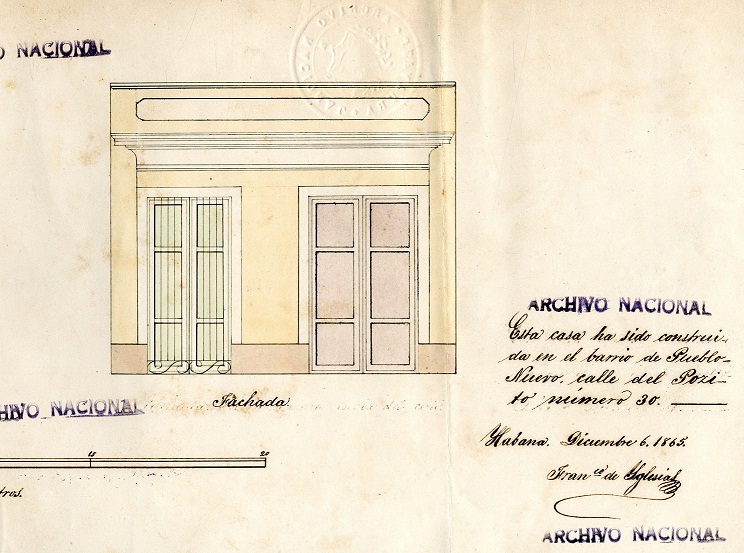 O NACIONAL
ARCHIVO NACIONAL
Esta casa ha sido construi-
da en el barrio de Pueblo-
Nuevo, calle del Pozi-
to número 30.
Fachada
HIVO NACIONAL
Habana. Diciembre 6. 1865.
15
20
Franco. de Yglesias
tros.
ARCHIVO NACIONAL